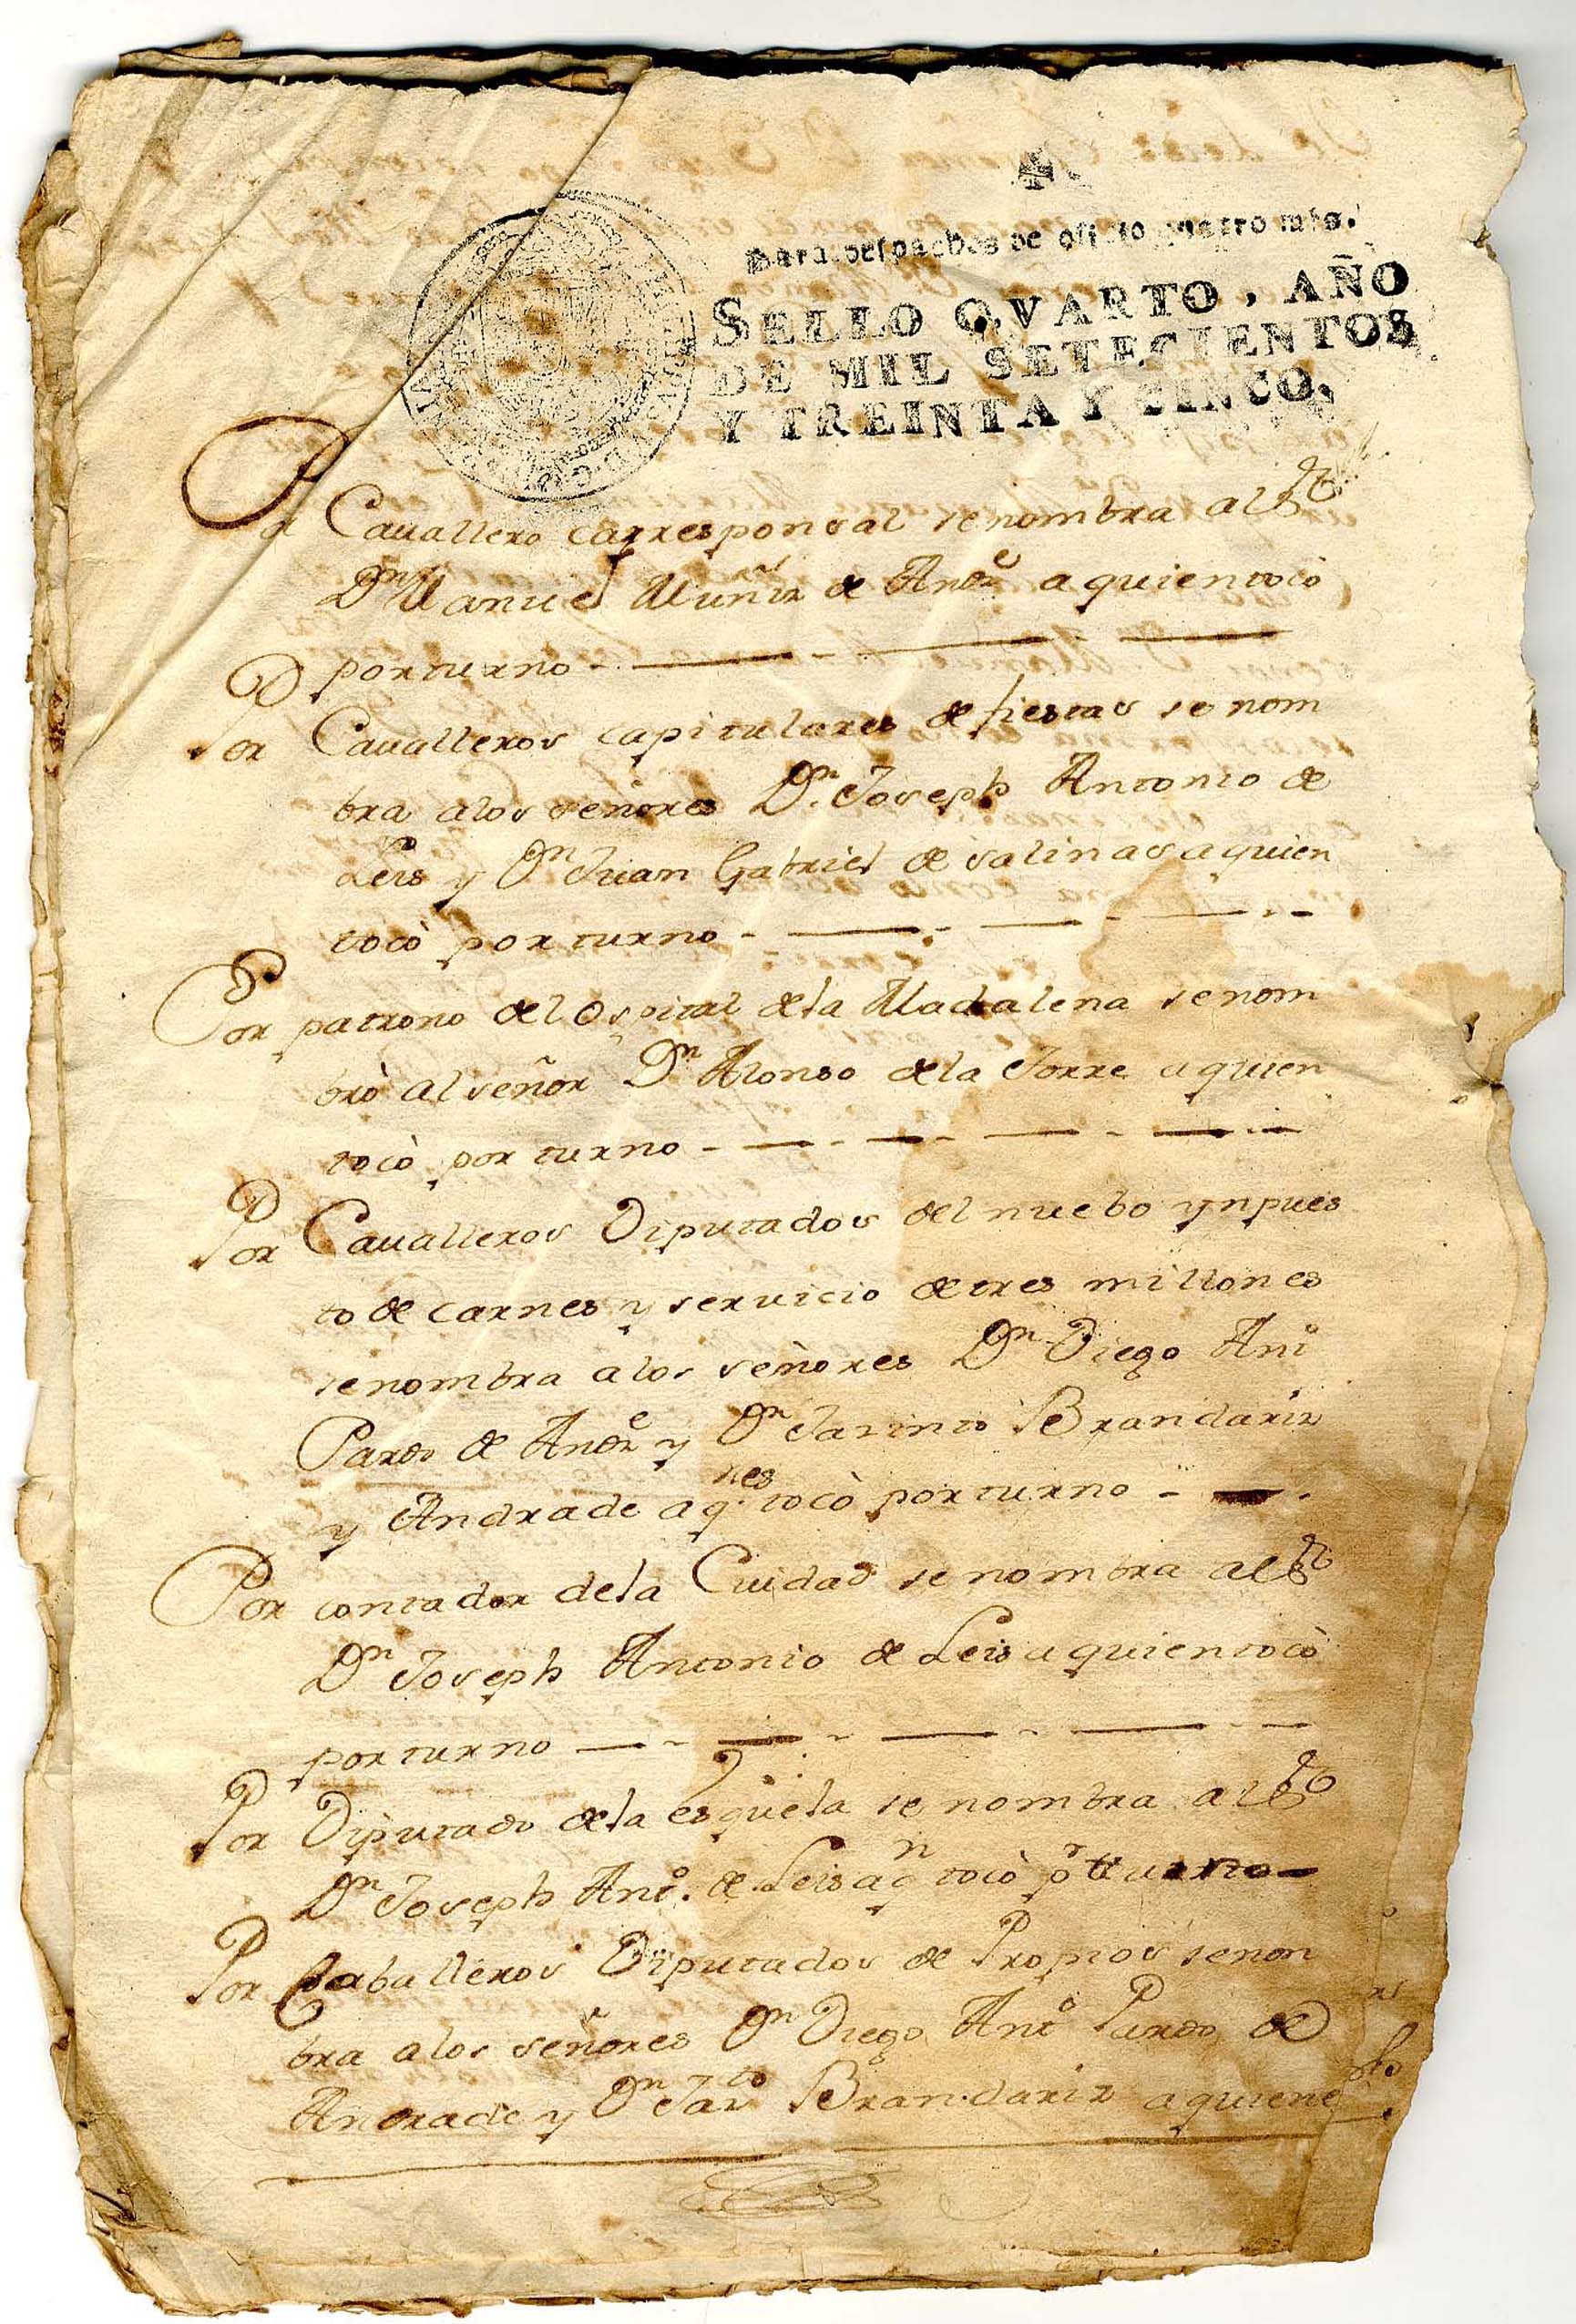 Para despachos de oficio quatro mrs.
SELLO QVARTO, AÑO
DE MIL SETECIENTOS
Y TREINTA Y CINCO.
Por Cauallero corresponsal se nombra al Sr
Dn Manuel Muñiz de Andre a quien tocò
por turno
Por Caualleros capitulares de fiestas se nom
bra a los señores Dn. Joseph Antonio de
Leis y Dn Juan Gabriel de Salinas a quien
tocò por turno
Por patrono del Ospital de la Madalena se nom
brò al señor Dn Alonso de la Torre a quien
tocò por turno
Por Caualleros Diputados del nuebo ynpues
to de carnes y servicio de tres millones
se nombra a los señores Dn Diego Anto
Pardo de Andre y Dn Jacinto Brandariz
y Andrade a q.nes tocò por turno
Por contador de la Cuidad se nombra al Sr
Dn Joseph Antonio de Leis a quien tocò
por turno
Por Diputado de la esquela se nombra al Sr
Dn Joseph Anto. de Leis a qn tocò pr turno
Por Caballeros Diputados de Propios se non
bra a los señores Dn Diego Anto Pardo de
Andrade y Dn Jacto Brandariz a quiene